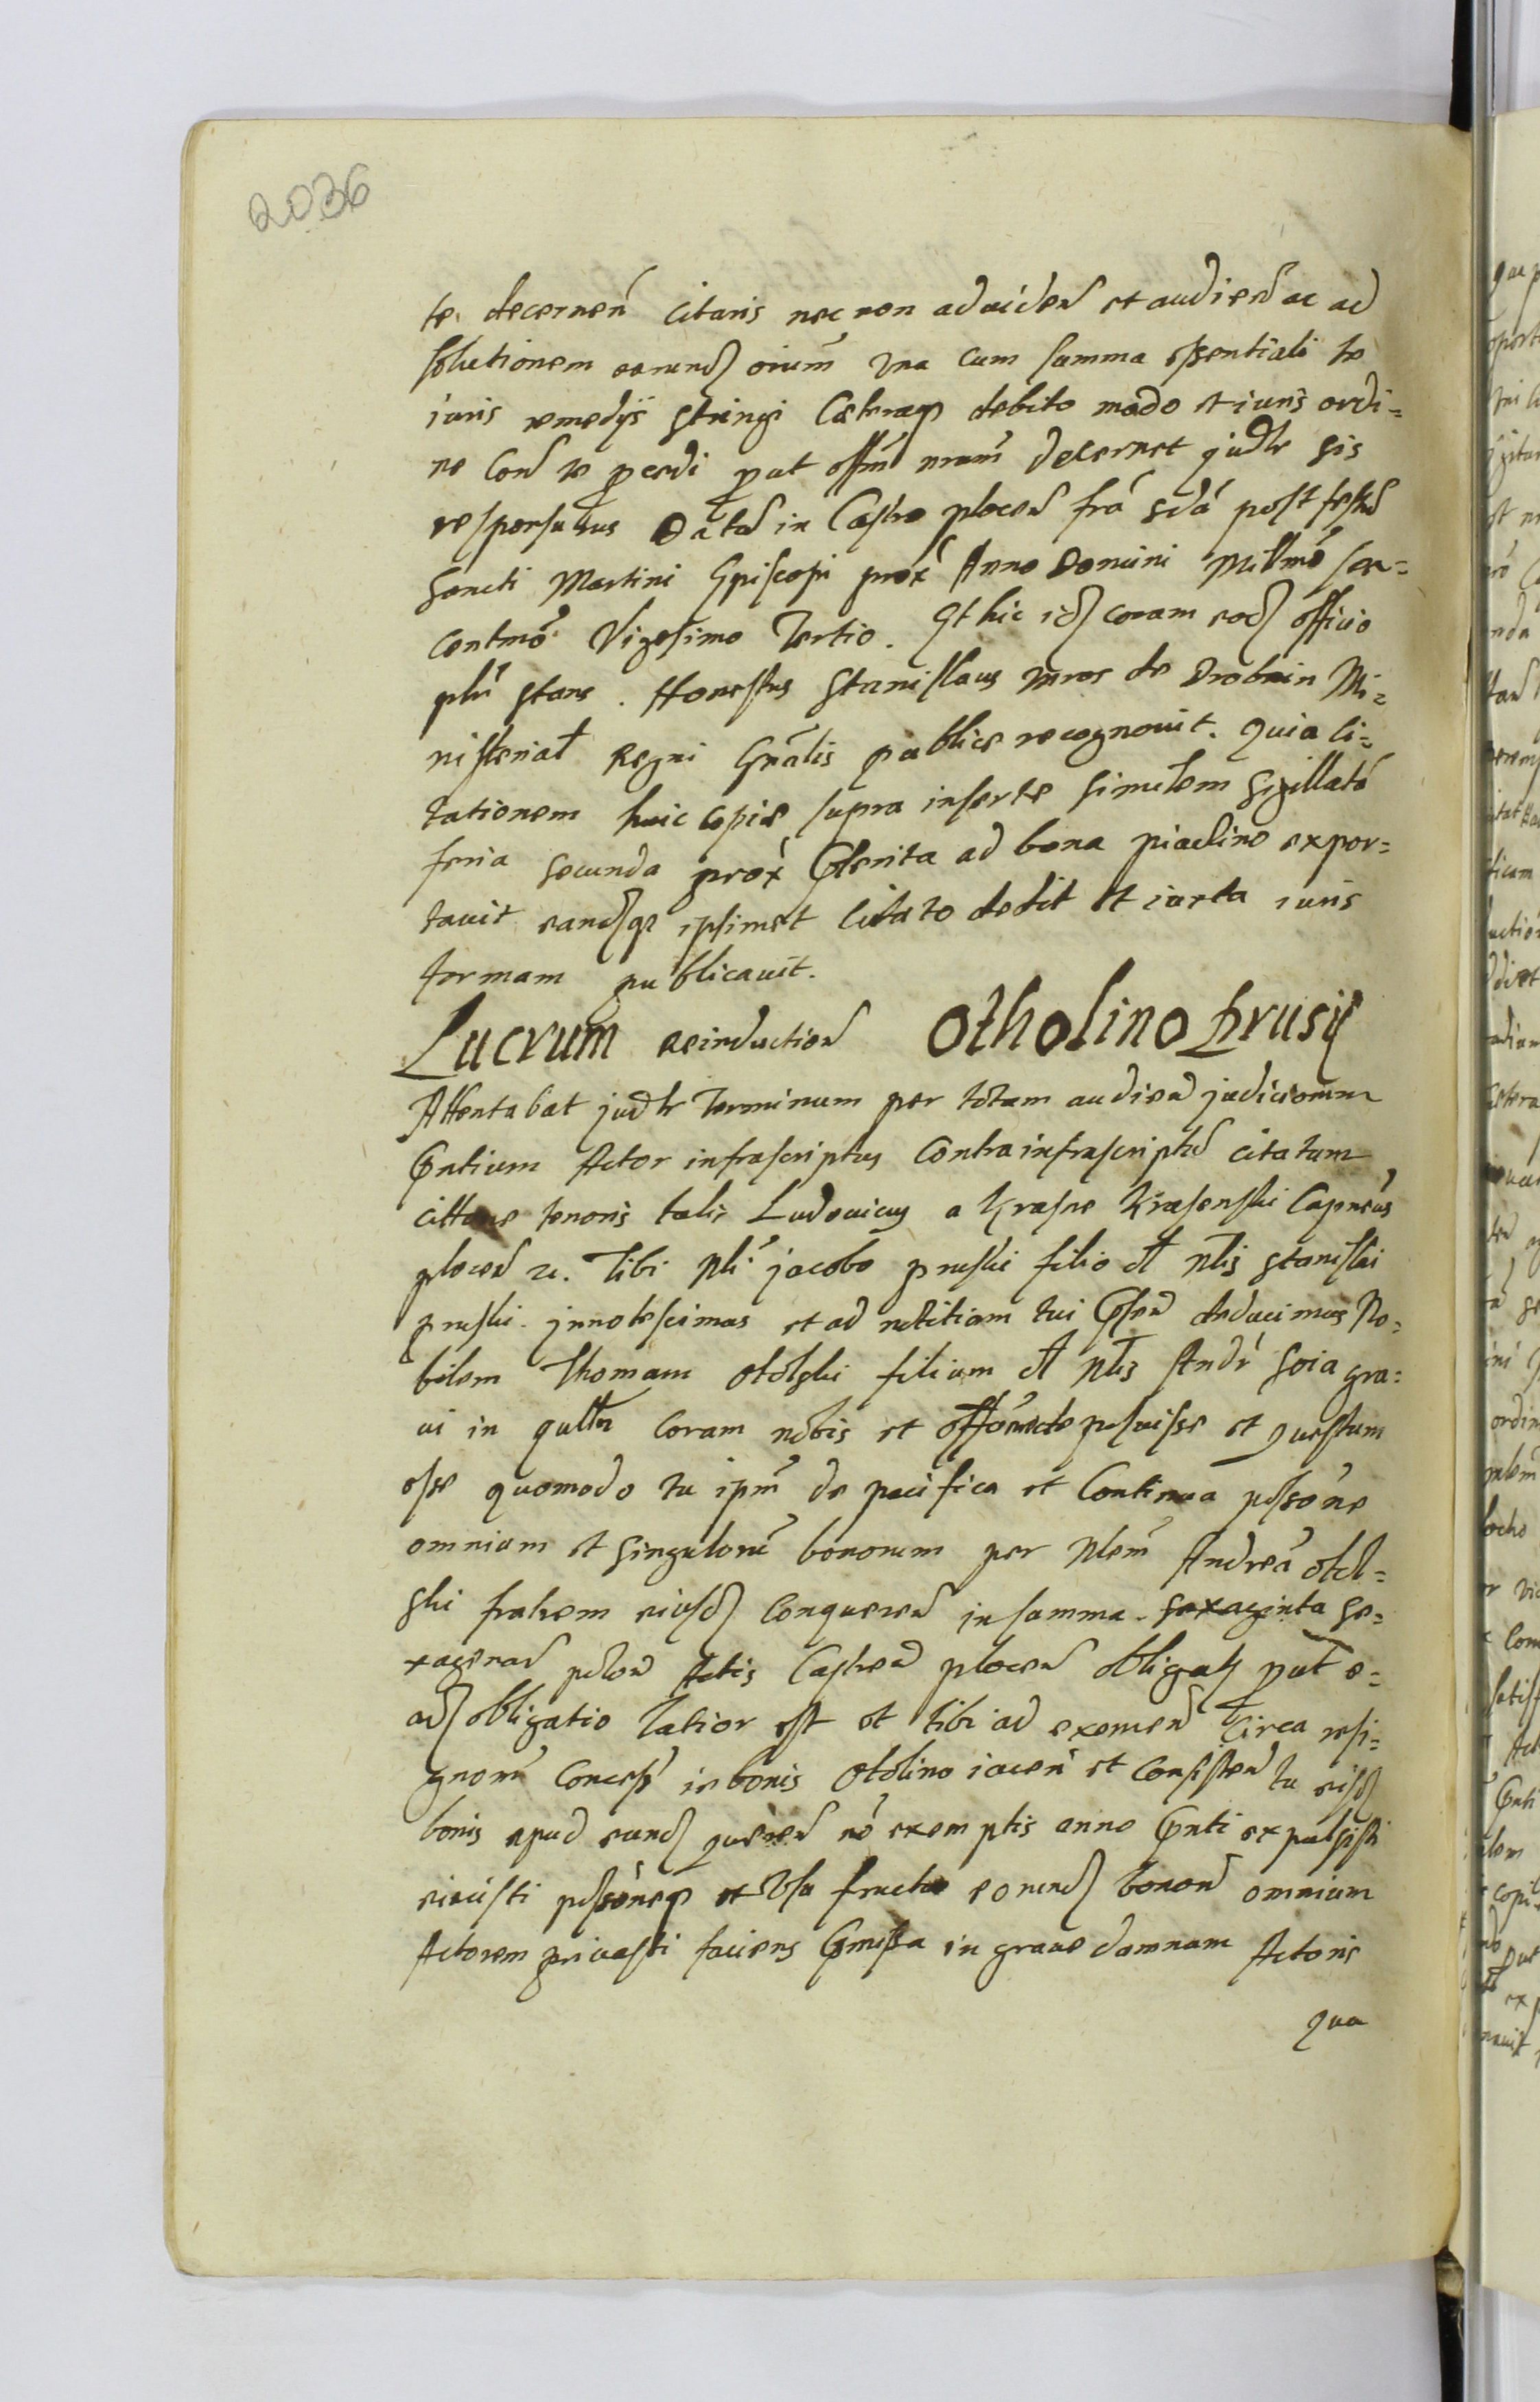 2036
te decernen citaris nec non ad viden et audien ac ad
solutionem earund oium una cum summa essentiali te
iuris remedijs stringi Caeteraqz debito modo et iuris ordi=
ne Con te pcedi put offm nrum decernet judtr sis
responsurus Datum in Castro plocen fria scda post festum
Sancti Martini Episcopi prox Anno Domini Millmo sex=
centmo Vigesimo Tertio. Et hic id coram eod officio
pntr stans. Honestus Stanislaus de Drobnin Mi=
nisterial Regni Gnalis publice recognovit. Quia ci=
tationem huic copiae supra insertae similem sigillatam
feria secunda prox pterita ad bona piaclino expor=
tavit eandqz ipsimet Citato dedit et iuxta iuris
formam publicavit.
Lucrum reinduction Otholino prusij
Attentabat judtr Terminum per totam audien judiciorum
pntium Actor infrascriptus Contra infrascriptum citatum
cittone tenoris talis Ludovicus a Krasne Krasenski Capneus
plocen etc. Tibi Nli jacobo pruski filio Nlis Stanislai
pruski. jnnotescimus et ad notitiam tui psen deducimus No=
bilem Thomam Otolski filium Nlis Andr Soia gra=
vi in qulla Coram nobis et offo nro deposuisse et questum
esse quomodo tu ipm de pacifica et Continua possone
omnium et singulorum bonorum per Nlem Andream Otol=
ski fratrem eiusd Conqueren in summa sexaginta se=
xagenar polon Actis Castren plocen obligat put e=
ad obligatio latior est et tibi ad exemen circa resi=
gnonem Concess in bonis Otolino iacen et consisten tu eisd
bonis apud eund queren no exemptis anno pnti expulsisti
eiecisti possoneqz et Usu fructu eorund bonor omnium
Actorem privasti faciens pmissa in grave damnum Actoris
qua